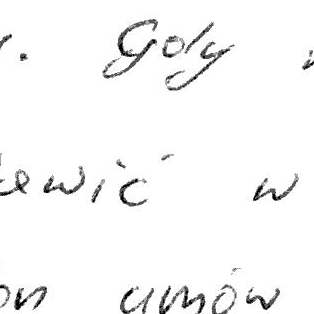 . Goly
ewić w
on umów